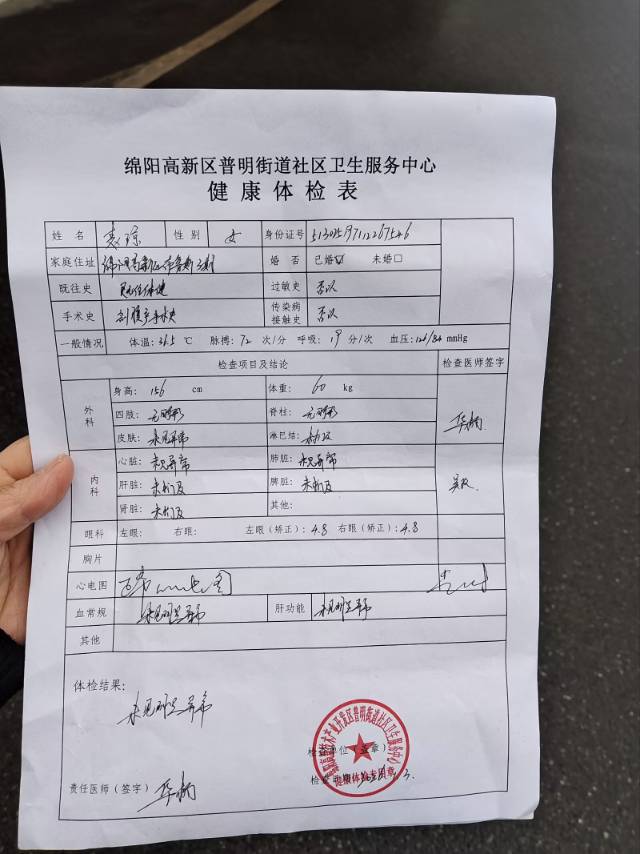 绵阳高新区普明街道社区卫生服务中心
健康体检表
姓名 性别 女 身份证号
家庭住址 婚否 已婚☑ 未婚□
既往史 过敏史 否认
手术史 剖腹产手术史 传染病接触史 否认
一般情况 体温：36.5 ℃ 脉搏：72 次/分 呼吸：19 分/次 血压：126/84 mmHg
检查项目及结论 检查医师签字
外科 身高：156 cm 体重：60 kg
四肢：无畸形 脊柱：无畸形
皮肤：未见异常 淋巴结：未扪及
内科 心脏：未见异常 肺脏：未见异常
肝脏：未扪及 脾脏：未扪及
肾脏：未扪及 其他：
眼科 左眼： 右眼： 左眼（矫正）：4.8 右眼（矫正）：4.8
胸片
心电图
血常规 未见明显异常 肝功能 未见明显异常
其他
体检结果：
未见明显异常
检查单位（盖章）
责任医师（签字） 检查日期
普明街道社区卫生服务中心
健康体检专用章